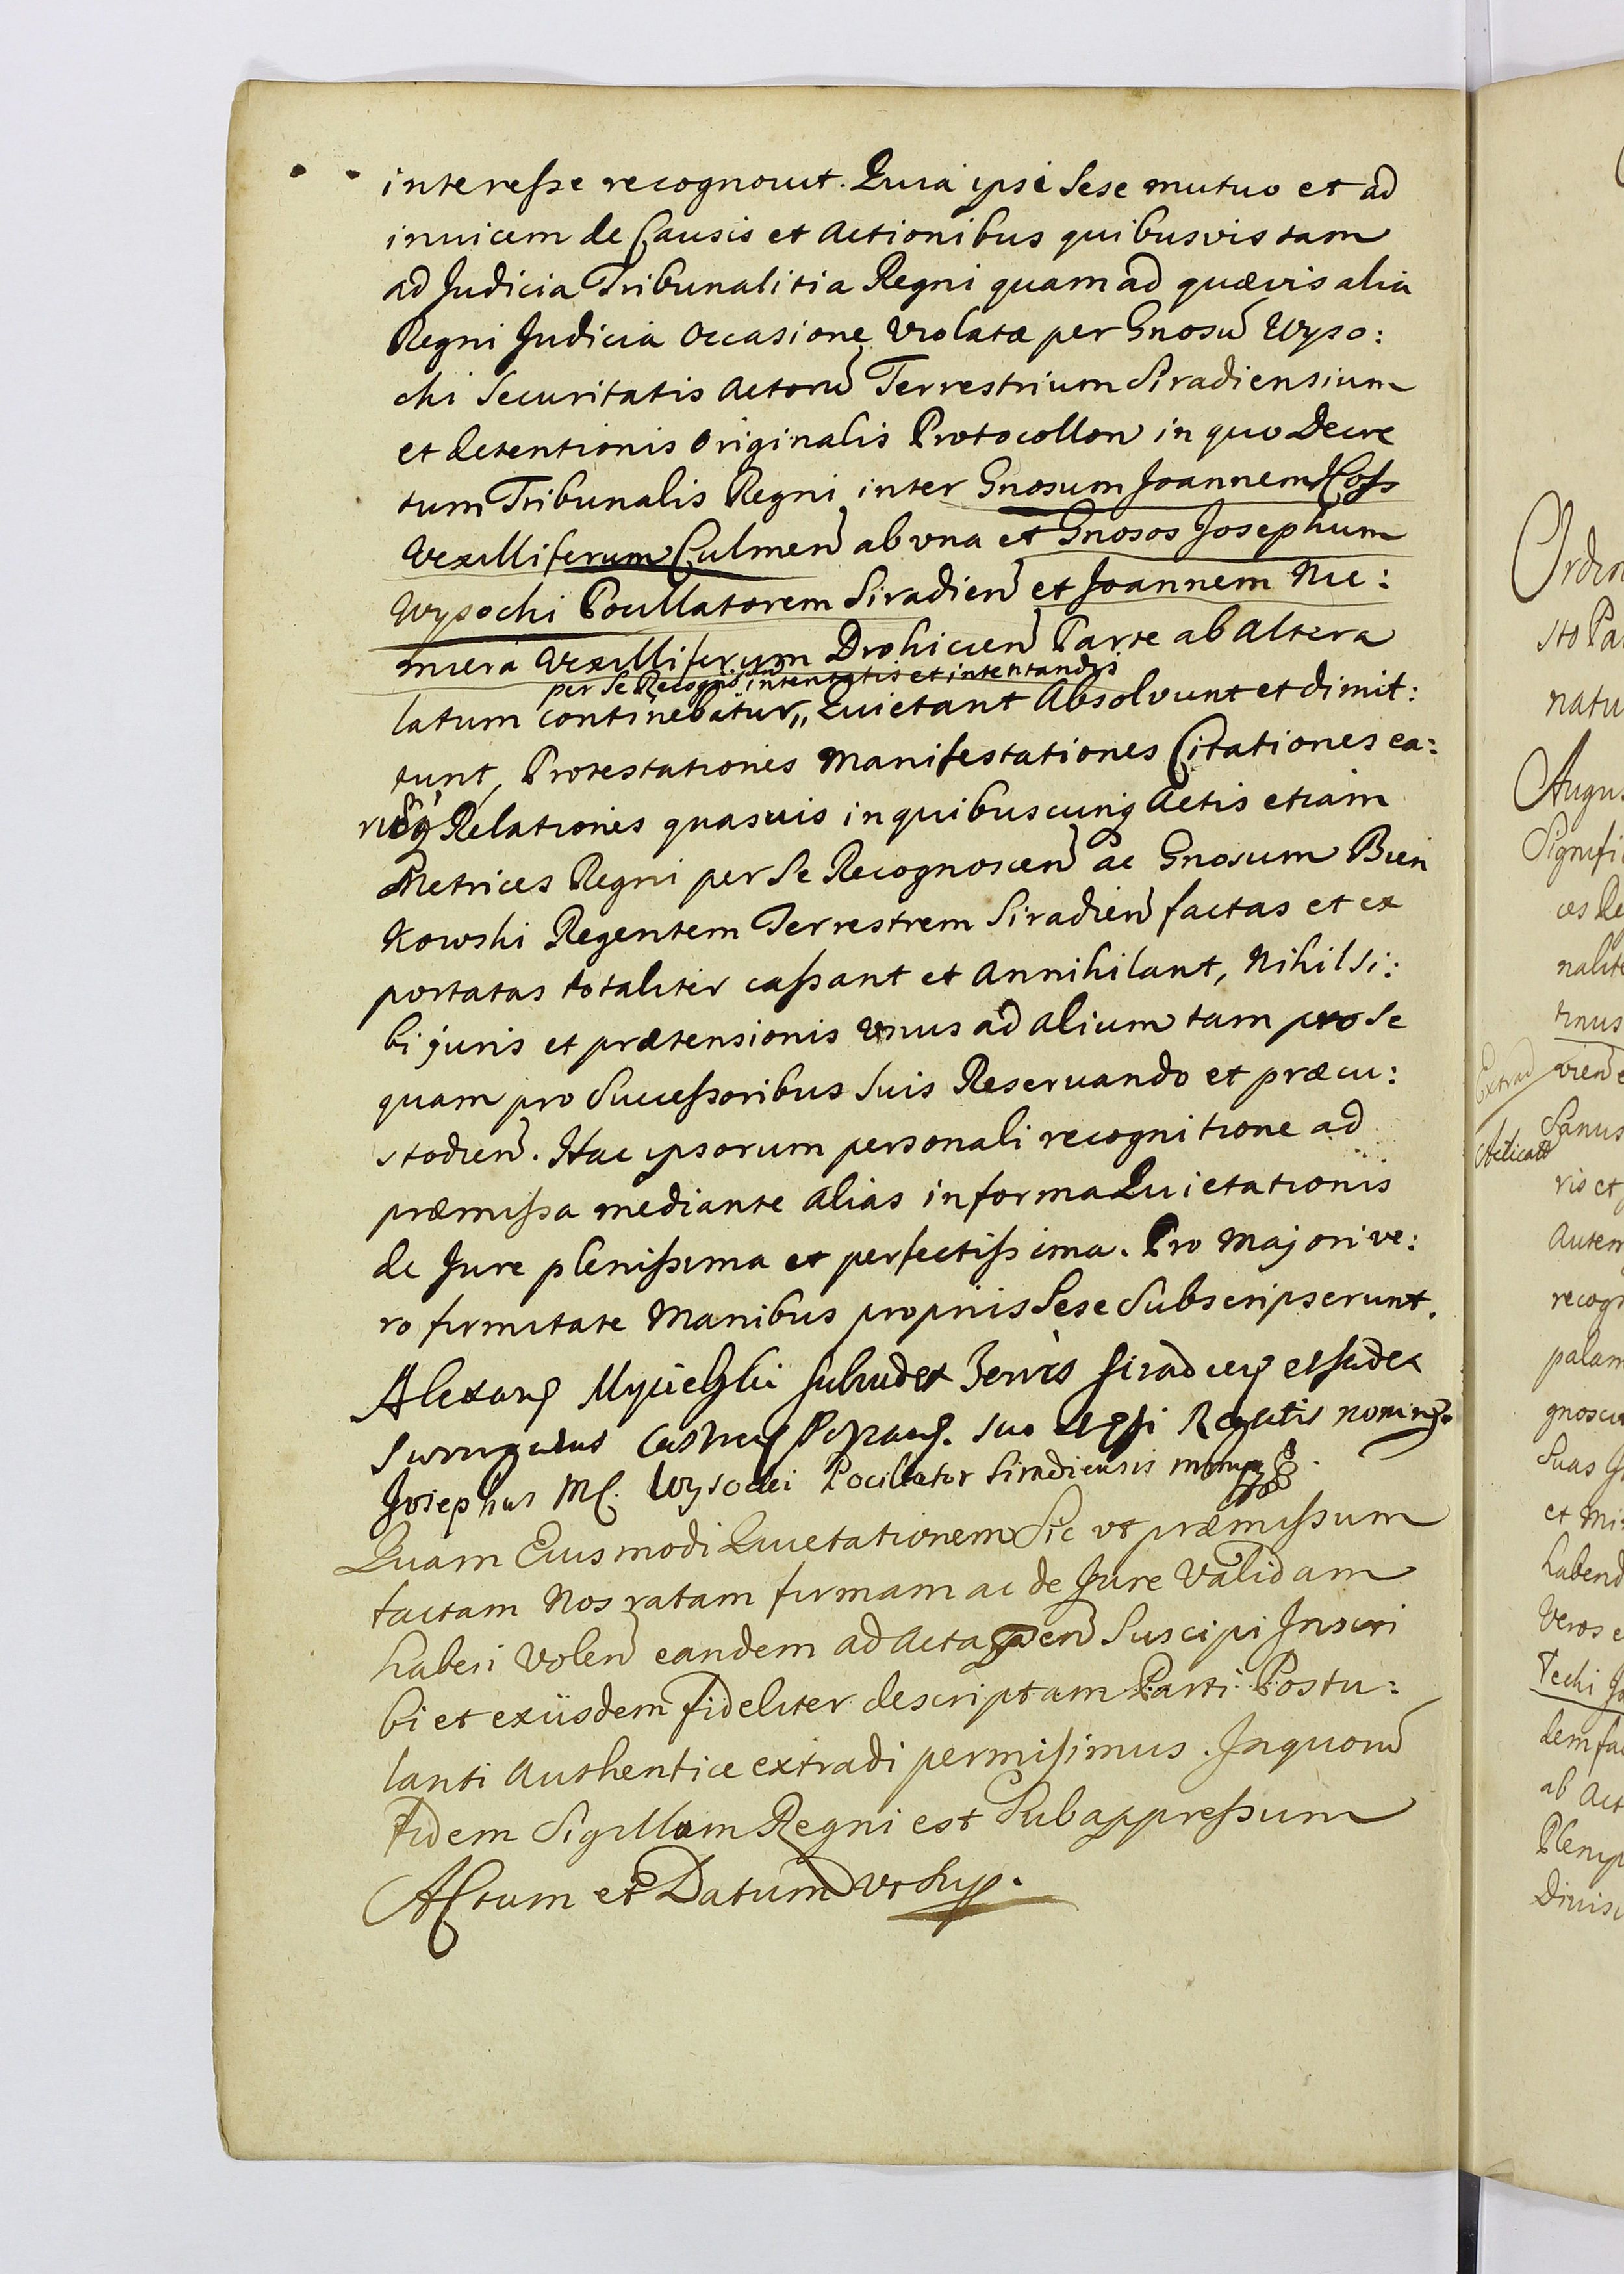 interesse recognovit. Quia ipsi Sese mutuo et ad
invicem de Causis et Actionibus quibusvis tam
ad Judicia Tribunalitia Regni quam ad quævis alia
Regni Judicia Occasione Violatæ per Gnosũ Wyso:
cki Securitatis Actorũ Terrestrium Siradiensium
et detentionis Originalis Protocollon in quo Decre
tum Tribunalis Regni inter Gnosum Joannem Koss
Vexilliferum Culmen̄ ab vna et Gnosos Josephum
Wysocki Pocillatorem Siradien̄ et Joannem Nie:
miera Vexilliferum Drohicien̄ Parte ab Altera
per Se Recogn intentatis et intentandis
latum continebatur, Quietant Absolvunt et dimit:
tunt, Protestationes Manifestationes Citationes ea:
Relationes quasvis in quibuscunq Actis etiam
Metrices Regni per Se Recognoscen̄ ac Gnosum Bień
kowski Regentem Terrestrem Siradien̄ factas et ex
portatas totaliter cassant et Annihilant, Nihil Si:
bi juris et prætensionis Unus ad alium tam pro Se
quam pro Successoribus Suis Reservando et præcu:
stodien̄. Hac ipsorum personali recognitione ad
præmissa mediante alias in forma Quietationis
de Jure plenissima et perfectissima. Pro Majori ve:
ro firmitate Manibus propriis Sese Subscripserunt.
Alexan Mycielski Subiudex et Judex
Surrogatus suo et nomine.
Josephus Wysocki Pocillator Siradiensis mp
Quam Eiusmodi Quietationem Sic vt præmissum
factam Nos ratam firmam ac de Jure Validam
haberi Volen̄ eandem ad Acta pñ̄en̄ Suscipi Inscri
bi et ex iisdem fideliter descriptam Parti Postu:
lanti Authentice extradi permisimus. In quorũ
fidem Sigillum Regni est Subappressum
Actum et Datum vt Sup.
Ordin
sto Pa
natu
Augus
Signifi
ces Re
nalite
tinus
Extrad
vien e
Sanus
ris et
Autem
recogn
palam
gnoscu
Suas
et Mi
habend
Veros e
dem fa
ab Act
Plenip
Divisi